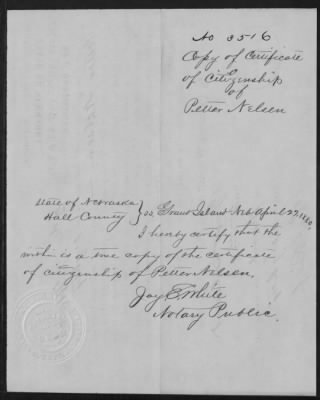 No 3516
Copy of Certificate
of Citizenship
of
Petter Nelsen
State of Nebraska
Hall County } ss Grand Island Neb April 27, 1880.
I hereby certify that the
within is a true copy of the certificate
of citizenship of Petter Nelsen.
Jay E. White
Notary Public.